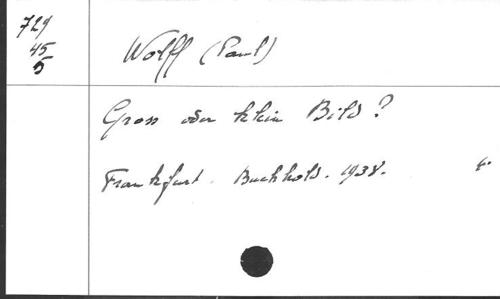 729
45
5
Wolff (Paul)
Gross oder klein Bild?
Frankfurt. Buchhold. 1938.